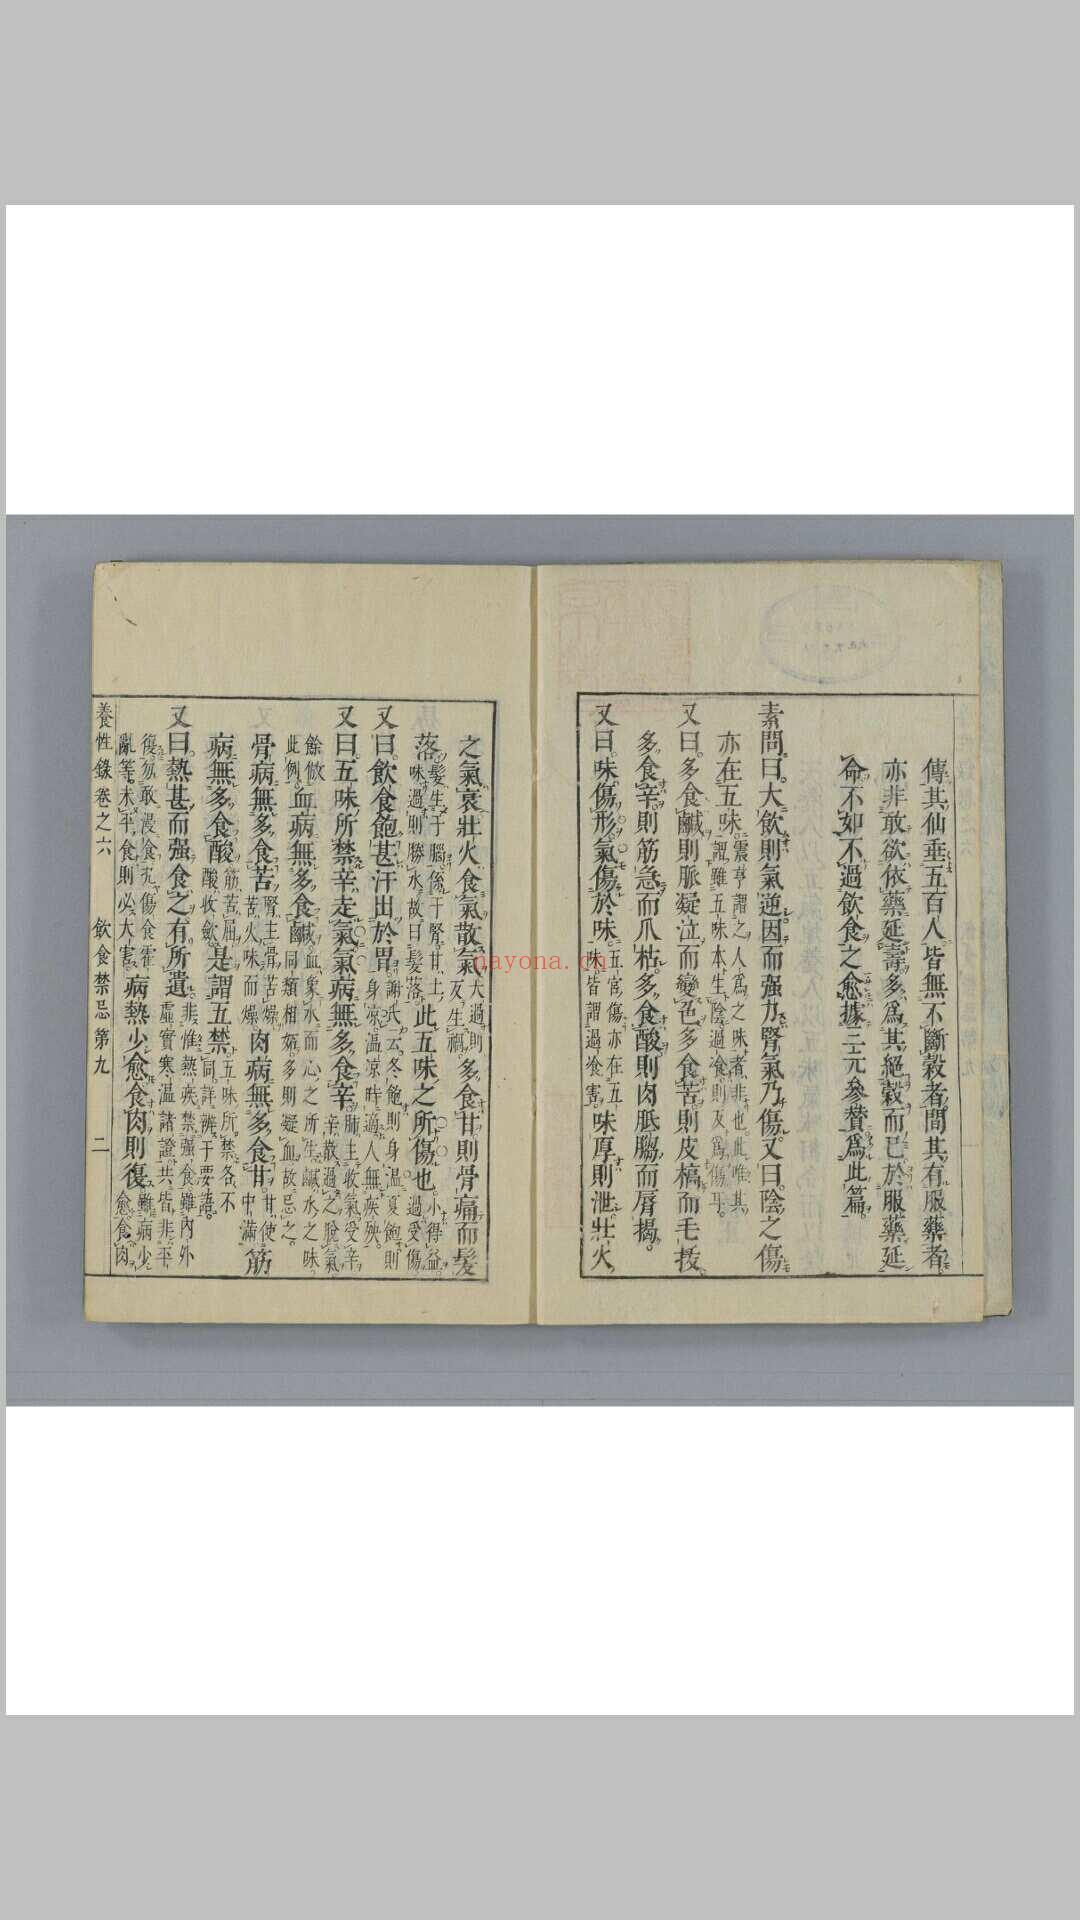 傳其仙垂五百人皆無不斷穀者間其有服藥者
亦非敢欲依藥延壽多爲其絕穀而已於服藥延
命不如不過飮食之愈據三元參賛爲此篇
素問曰大飮則氣逆因而强力腎氣乃傷又曰陰之傷
亦在五味震亨謂之人爲之味者非也此唯其
謂雖五味本生陰過食則反爲傷耳
又曰多食鹹則脈凝泣而變色多食苦則皮槁而毛拔
多食辛則筋急而爪枯多食酸則肉胝䐢而脣揭
又曰味傷形氣傷於味五宮傷亦在五
味皆謂過飡害味厚則泄壯火
之氣衰壯火食氣散氣大過則
反生禍多食甘則骨痛而髮
落髮生于腦係于腎甘土
味過則勝水故曰髮落此五味之所傷也小得益
過受傷
又曰飮食飽甚汗出於胃謝氏云冬飽則身溫夏飽則
身凉溫凉時適人無疾殃
又曰五味所禁辛走氣氣病無多食辛肺主收氣受辛
辛散過之脫氣
餘倣
此例血病無多食鹹血象水而心之所生鹹水之味
鹵同類相
多則凝血故忌之
骨病無多食苦腎主骨苦燥
苦火味而燥肉病無多食甘甘使
中滿筋
病無多食酸筋苦屈
酸收歛是謂五禁五味所禁各不
同詳辨于要語
又曰熱甚而强食之有所遺非惟熱疾禁强食雖內外
虛實寒溫諸證共皆非平
復勿敢漫食尤傷食霍
亂等未平食則必大害病熱少愈食肉則復雖病少
愈食肉
養性錄卷之六 飮食禁忌第九 二
nayona.cn